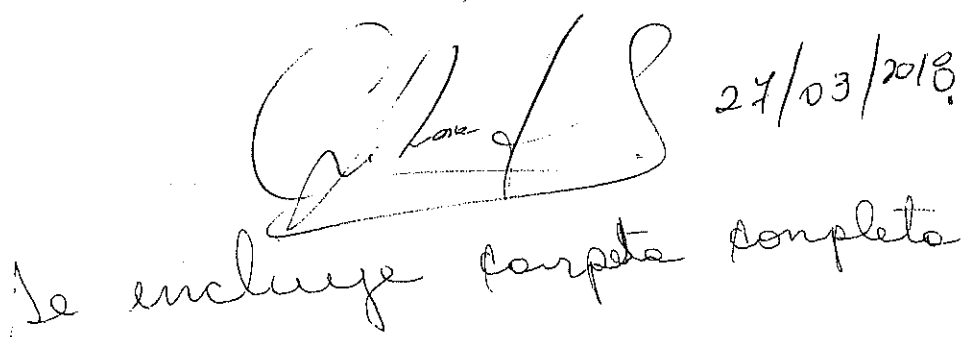 27/03/2018.
Se encluye carpeta completa